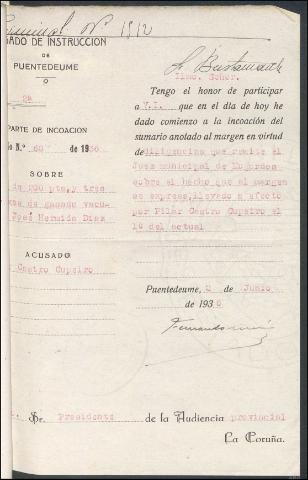 Criminal Nº 1912
GADO DE INSTRUCCION
DE
PUENTEDEUME
2ª
PARTE DE INCOACION
o N.º 60 de 1936
SOBRE
de 200 pts. y tres
de ganado vacu-
José Hermida Diaz
ACUSADO
Castro Cupeiro
Bustamante
Ilmo. Señor.
Tengo el honor de participar
a V.I. que en el día de hoy he
dado comienzo a la incoación del
sumario anotado al margen en virtud
de diligencias que remite el
Juez municipal de Mugardos
sobre el hecho que al margen
se expresa, llevado a efecto
por Pilar Castro Cupeiro el
1º del actual
Puentedeume, de Junio
de 1936
Sr. Presidente de la Audiencia provincial
La Coruña.